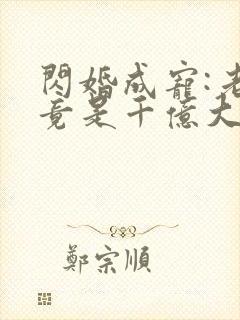 閃婚成寵:老
竟是千億大
鄭宗順